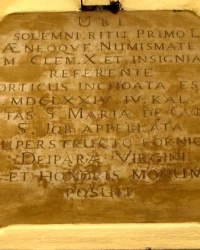 UBI
SOLEMNI RITU PRIMO L
ÆNEOQVE NUMISMATE
EM CLEM. X. ET INSIGNIA
REFERENTE
ORTICUS INCHOATA ES
MDCLXXIV IV. KAL
TAS S. MARIÆ DE C
S. IOB APPELLATA
UPERSTRUCTO FORNIC
DEIPARÆ VIRGINI
ET HONORIS MONUM
POSUIT